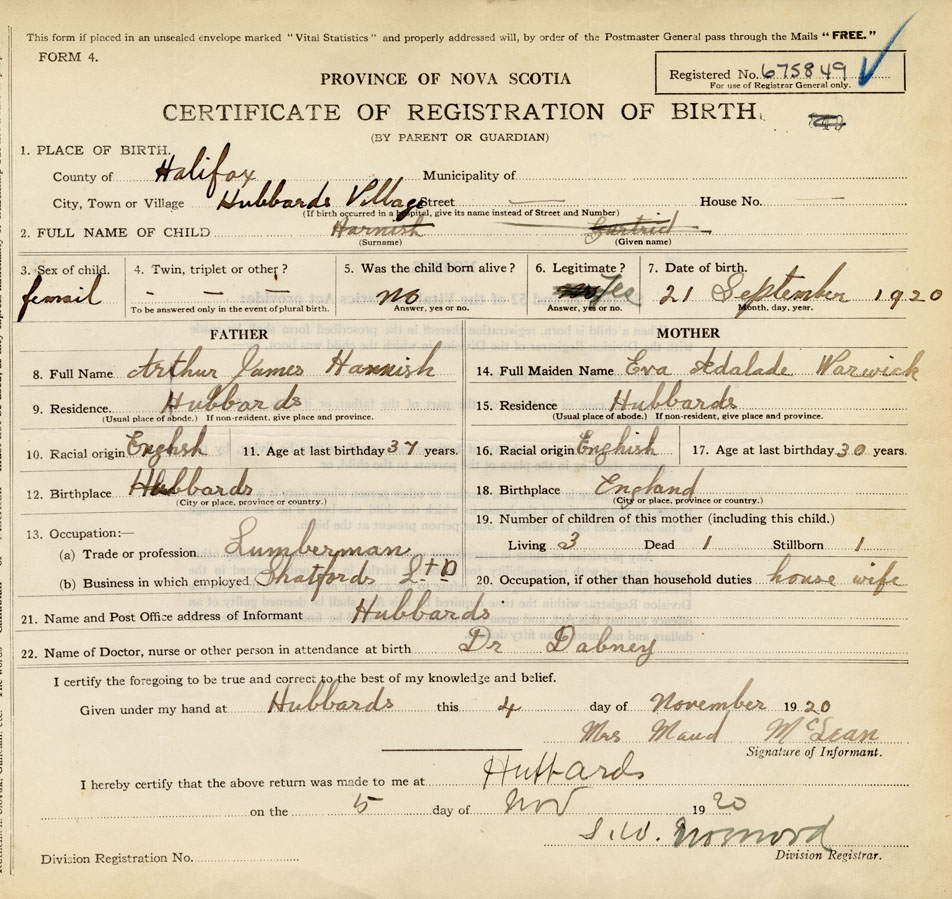 This form if placed in an unsealed envelope marked "Vital Statistics" and properly addressed will, by order of the Postmaster General pass through the Mails "FREE."
FORM 4.
Registered No. 675849
For use of Registrar General only.
PROVINCE OF NOVA SCOTIA
CERTIFICATE OF REGISTRATION OF BIRTH
(BY PARENT OR GUARDIAN)
1. PLACE OF BIRTH.
County of Halifax Municipality of
City, Town or Village Hubbards Village Street — House No. —
(If birth occurred in a hospital, give its name instead of Street and Number)
2. FULL NAME OF CHILD Harnish Gertrid
(Surname) (Given name)
3. Sex of child. 4. Twin, triplet or other? 5. Was the child born alive? 6. Legitimate? 7. Date of birth.
femail - - - no Yes 21 September 1920
To be answered only in the event of plural birth. Answer, yes or no. Answer, yes or no. Month, day, year.
FATHER
8. Full Name Arthur James Hannish
9. Residence. Hubbards
(Usual place of abode.) If non-resident, give place and province.
10. Racial origin English 11. Age at last birthday 37 years.
12. Birthplace Hubbards
(City or place, province or country.)
13. Occupation:—
(a) Trade or profession Lumberman
(b) Business in which employed Shatfords Ltd
MOTHER
14. Full Maiden Name Eva Adalade Warwick
15. Residence Hubbards
(Usual place of abode.) If non-resident, give place and province.
16. Racial origin Enghish 17. Age at last birthday 30 years.
18. Birthplace England
(City or place, province or country.)
19. Number of children of this mother (including this child.)
Living 3 Dead 1 Stillborn 1
20. Occupation, if other than household duties house wife
21. Name and Post Office address of Informant Hubbards
22. Name of Doctor, nurse or other person in attendance at birth Dr Dabney
I certify the foregoing to be true and correct to the best of my knowledge and belief.
Given under my hand at Hubbards this 4 day of November 1920
Mrs Maud McLean
Signature of Informant.
I hereby certify that the above return was made to me at Hubbards
on the 5 day of Nov 1920
S.W.
Division Registrar.
Division Registration No.